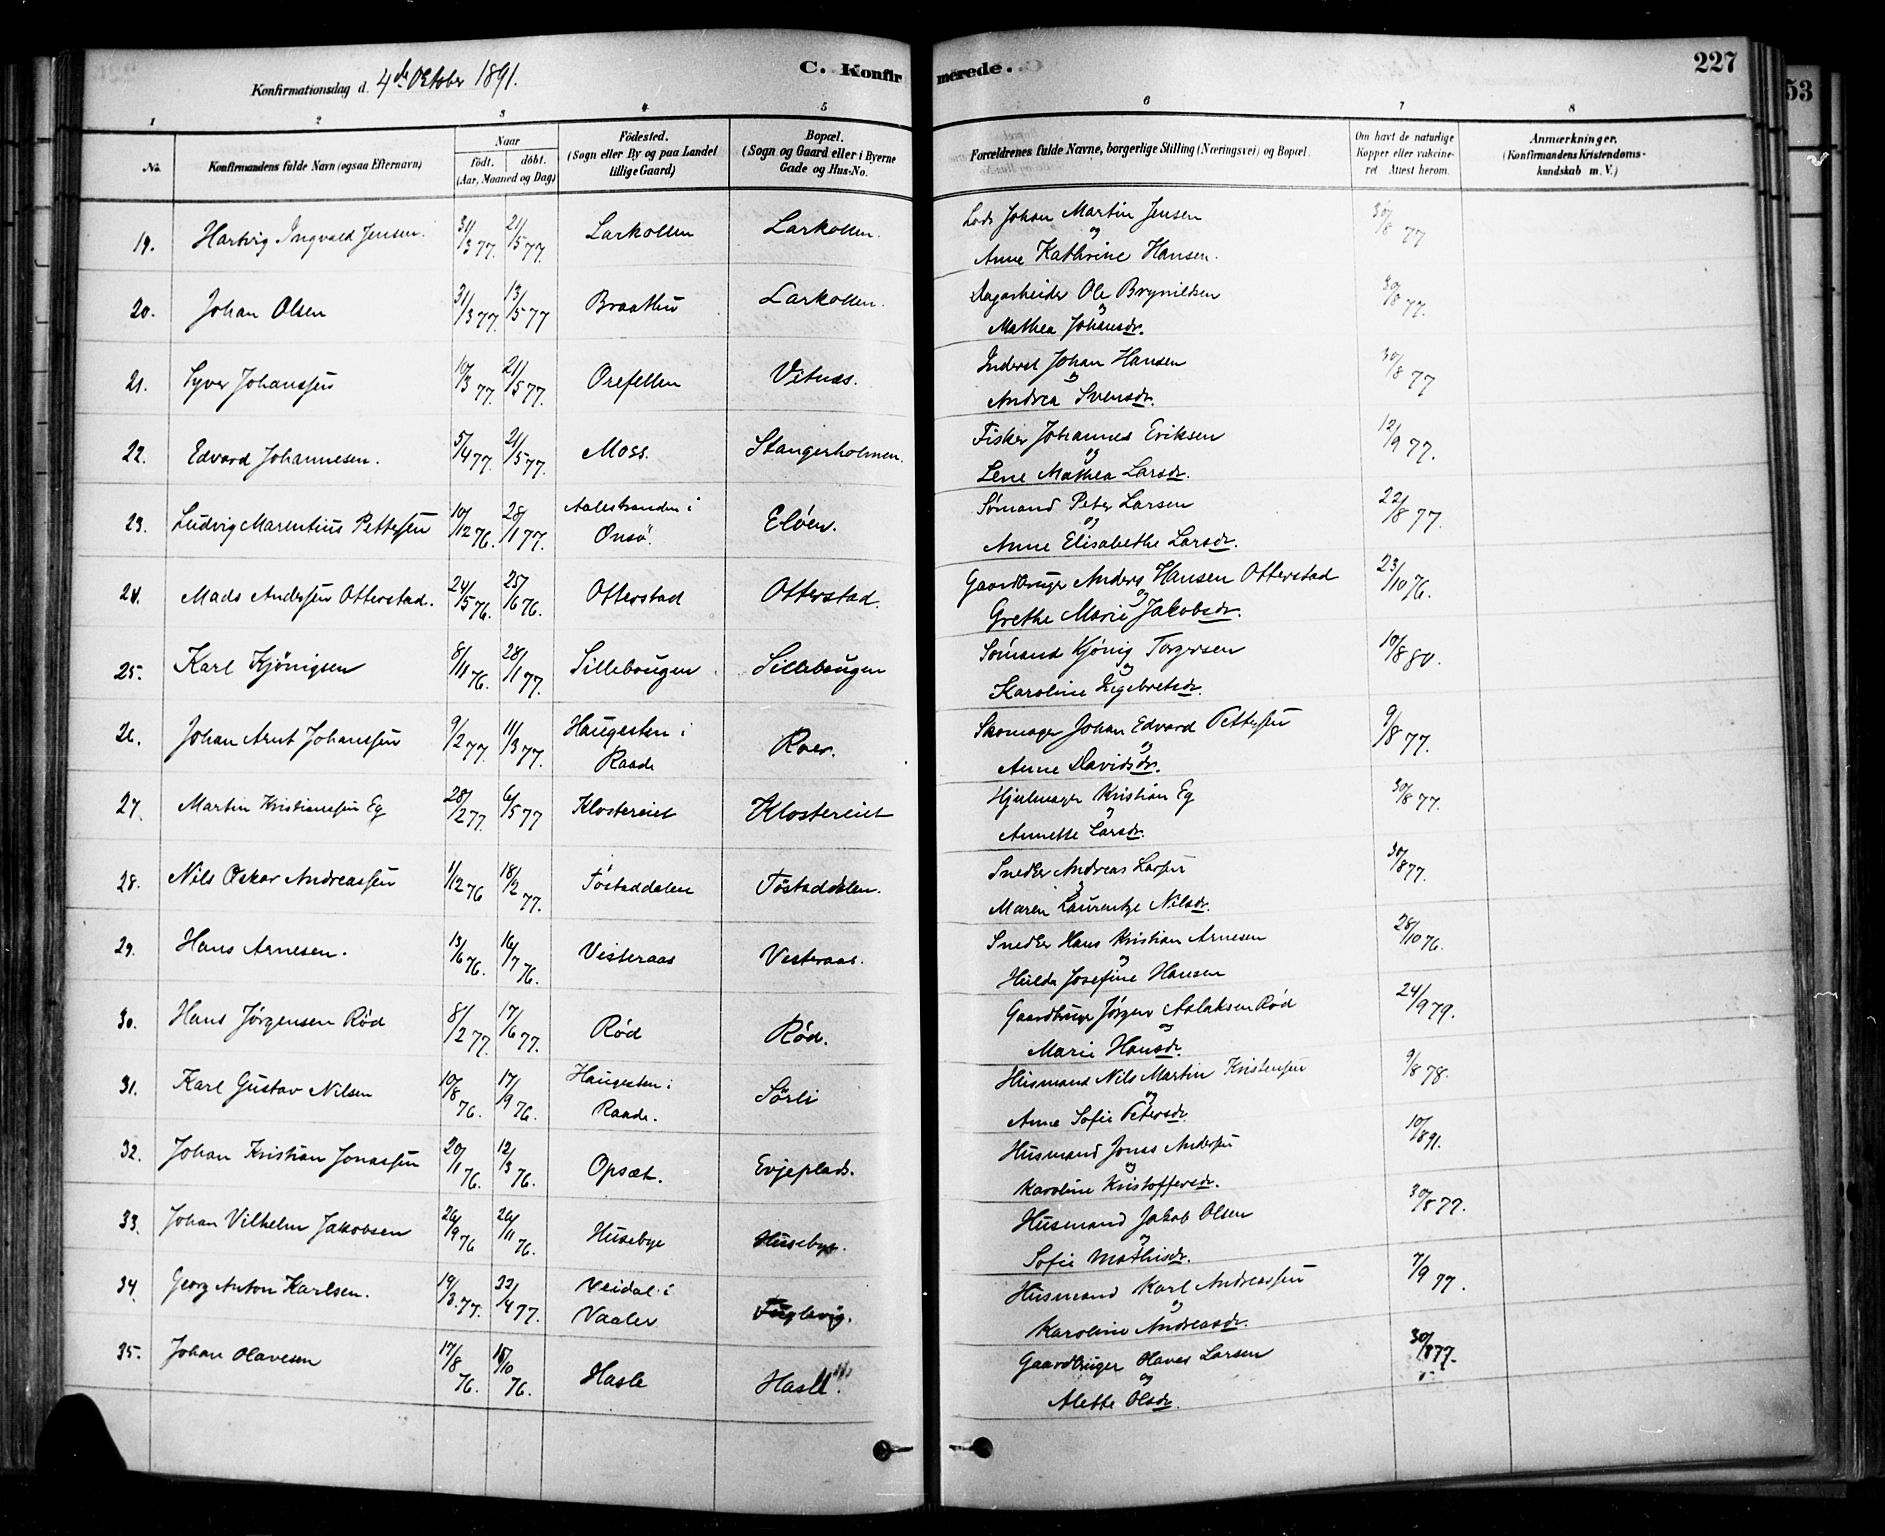 227
53
Konfirmationsdag d. 4de Oktober 1891.
C. Konfir
merede.
1 2 3 4 5 6 7 8
No.
Konfirmandens fulde Navn (ogsaa Efternavn)
Naar
födt. döbt.
(Aar, Maaned og Dag)
Födested.
(Sogn eller By og paa Landet
tillige Gaard)
Bopæl.
(Sogn og Gaard eller i Byerne
Gade og Hus-No.
Forældrenes fulde Navne, borgerlige Stilling (Næringsvei) og Bopæl.
Om havt de naturlige
Kopper eller vakcine-
ret Attest herom.
Anmærkninger.
(Konfirmandens Kristendoms-
kundskab m. V.)
19. Hartvig Ingvald Jensen. 31/3 77. 21/5 77. Larkollen Larkollen. Lods Johan Martin Jensen 30/8 77
og
Anne Kathrine Hansen.
20. Johan Olsen 31/3 77. 13/5 77 Braathe Larkollen. Dagarbeider Ole Brynildsen 30/8 77.
og
Mathea Johansdr.
21. Syver Johanssen 10/3 77. 21/5 77. Orefellen Vitnæs. Inderst Johan Hansen 30/8 77
og
Andrea Svensdr.
22. Edvard Johannesen. 5/4 77. 21/5 77. Moss. Stangerholmen. Fisker Johannes Eriksen 12/9 77.
og
Lene Mathea Larsdr.
23. Ludvig Marentius Pettersen 10/12 76. 28/1 77. Aalestranden i Elöen. Sømand Peter Larsen 22/8 77.
Onsö. og
Anne Elisabethe Larsdr.
24. Mads Andersen Otterstad. 24/5 76. 25/6 76. Otterstad Otterstad. Gaardbruger Anders Hansen Otterstad 23/10 76.
og
Grethe Marie Jakobsdr.
25. Karl Kjönigsen 8/11 76. 28/1 77. Sillebaugen Sillebaugen Sømand Kjönig Torgersen 10/8 80.
og
Karoline Ingebretsdr.
26. Johan Arnt Johanssen 9/2 77. 11/3 77. Haugesten i Roer. Skomager Johan Edvard Pettersen 9/8 77.
Raade og
Anne Davidsdr.
27. Martin Kristianssen Eg 28/2 77. 6/5 77 Klostereiet Klostereiet Hjulmager Kristian Eg 30/8 77.
og
Annette Larsdr.
28. Nils Oskar Andreassen 1/12 76 18/2 77. Töstaddalen Töstaddalen. Snedker Andreas Larsen 30/8 77.
og
Maren Laurentze Nilsdr.
29. Hans Arnesen. 13/6 76. 16/7 76. Visteraas Vesteraas. Snedker Hans Kristian Arnesen 28/10 76.
og
Hulda Josefine Hansen
30. Hans Jørgensen Rød 8/2 77. 17/6 77. Rød Rød. Gaardbruger Jørgen Aslaksen Rød 24/9 79.
og
Marie Hansdr.
31. Karl Gustav Nilsen 10/8 76. 17/9 76. Haugesten i Sörli Husmand Nils Martin Kristensen 9/8 78.
Raade. og
Anne Sofie Petersdr
32. Johan Kristian Jonassen 20/1 76. 12/3 76. Opsæt. Evjeplads. Husmand Jonas Andersen 10/8 91.
og
Karoline Kristoffersdr.
33. Johan Vilhelm Jakobsen 26/9 76 26/11 76. Husebye Husebye. Husmand Jakob Olsen 30/8 77.
og
Sofie Mathisdr.
34. Georg Anton Karlsen. 19/3. 77. 22/4 77. Veidal i Fuglevig. Husmand Karl Andreassen 7/9 77.
Vaaler og
Karoline Andreasdr.
35. Johan Olavesen 17/8 76. 15/10 76. Hasle Hasle. Gaardbruger Olaves Larsen 30/8 77.
og
Alette Olsdr.